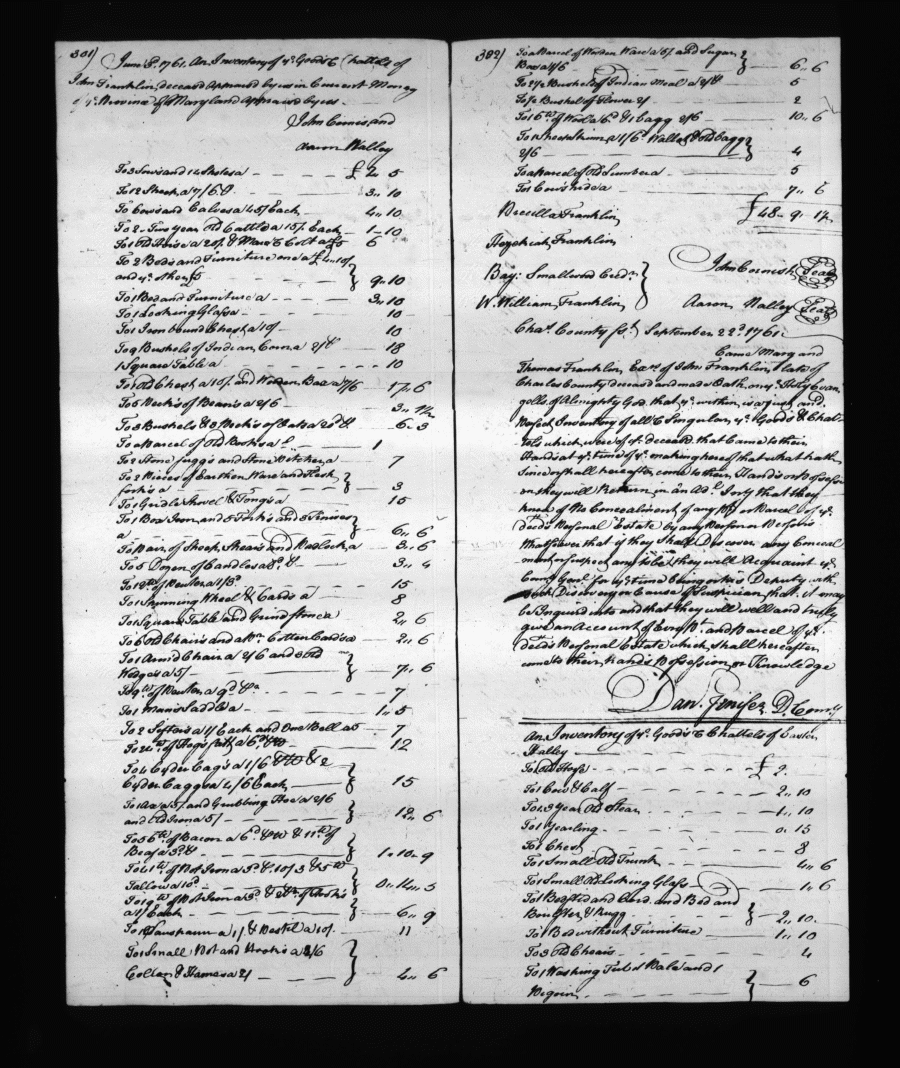 301)
June 8th 1761. An Inventory of ye Goods & Chattels of
John Franklin, deceasd Appraised by us in Current Money
of ye Province of Maryland Appraisd by us
John Cornish, and
Aaron Nalley
To 3 Sows and 12 Shotes a £ 2 5
To 12 Sheep, a 7/6 3 10
To Cows and Calves a 45/ Each 4 10
To 2 Two year Old Cattle a 15/ Each 1 10
To 1 Old Horse a 20/ & Mare & Colt a £5 6
To 2 Beds and Furniture one a £4 10/
and ye other £5 } 9 10
To 1 Bed and Furniture a 3 10
To 1 Looking Glass a 10
To 1 Iron bound Chest, a 10/ 10
To 9 Bushels of Indian Corn a 2/ 18
1 Square Table a 10
To 1 Old Chest, a 10/ and Wooden Box a 7/6 17 6
To 5 Pecks of Beans a 2/6 3 1½
To 3 Bushels & 2 Pecks of Oats a 6 3
To a Parcel of Old Books a 1
To 2 Stone Juggs and Stone Pitcher, a 7
To 2 Pieces of Earthen Ware and Flesh
forks a } 3
To 1 Gridle Shovel & Tongs a 15
To 1 Box Iron, and 5 Forks and 5 Knives
a } 6 6
To Pair of Sheep Shears and Padlock, a 3 6
To 5 Dozen of Candles a 3 4
To 12 lb of Pewter, a 1/3 15
To 1 Spinning Wheel & Cards a 8
To 1 Square Table and Grindstone a 2 6
To 6 Old Chairs and a Pr Cotton Cards a 2 6
To 1 Armd Chair a 2/6 and 3 Old
Wedges a 5/ } 7 6
To 9 lb of Pewter, a 9d 7
To 1 Man's Saddle a 1 5
To 2 Sifters a 1/ Each and One Bell a 5 7
To 24 lb of Hogs fatt, a 6d 12
To 4 Cyder Cags a 1/6 & 2
Cyder Caggs a 4/6 Each } 15
To 1 Ax a 5/ and Grubbing Hoe a 2/6
and Old Iron a 5/ } 12 6
To 56 lb of Bacon a 6d & 11 lb of
Beaf a 3d } 1 10 9
To 41 lb of Pot Iron a 3d 10/3 & 5 lb
Tallow a 10d } 0 14 5
To 19 lb of Pot Iron a 3d & 2 of Hooks
a 1/ Each } 6 9
To 1 Saucepann a 1/ & Pestel a 10/ 11
To 1 Small Pot and Hooks a 2/6
Collar & Hames a 2/ } 4 6
302)
To a Parcel of Wooden Ware a 5/ and Sugar
Box a 1/6 } 6 6
To 2½ Bushels of Indian Meal a 2/ 5
To ½ Bushel of Flower 2/ 2
To 16 lb of Wool a 6d & 1 bagg 2/6 10 6
To 1 Wheat a 1/6 Wallet & Old bagg
2/6 } 4
To a Parcel of Old Lumber a 5
To 1 Cows hide a 7 6
£ 48 9 1½
Precilla Franklin
Hezekiah Franklin
Bay: Smallwood Cedr
W. William Franklin } John Cornish Seal
Aaron Nalley Seal
Chas County Sct September 22d 1761.
Came Mary and
Thomas Franklin, Exrs of John Franklin, late of
Charles County deceasd and made Oath, on ye Holy Evan
gells of Almighty God, that ye within is a just and
Perfect Inventory of all & Singular, ye Goods & Chat-
tels which were of ye deceasd, that Came to their
Hands at ye time of ye making hereof that what hath
Since or shall hereafter come to their Hands or Posession
on they will Return, in an Adl Invty that they
know of No Concealment of any Pt or Parcel of ye
decds Personal Estate by any Person or Persons
Whatsoever that if they Shall Discover any Conceal
ment or Suspect any to be they will Acquaint ye
Comy Genl for ye time being or his Deputy with
such Discovery or Cause of Suspicion, that it may
be Inquired into and that they will well and truly
give an Account of Every Pt and Parcel of ye
decds Personal Estate which, shall hereafter
come to their Hands Possession or Knowledge
Dan. Jenifer D. Comy
An Inventory of ye Goods & Chattels of
Nalley
To Old Hogs £ 2
To 1 Cow & Calf 2 10
To 1 3 year Old Stear 1 10
To 1 Yearling 0 15
To 1 Chest 8
To 1 Small Old Trunk 4 6
To 1 Small Old Looking Glass 1 6
To 1 Bedsted and Cord and Bed and
Boulster & Rugg } 2 10
To 1 Bed without Furniture 1 10
To 3 Old Chears 4
To 1 Washing Tub 1 Pale and 1
Pigein } 6